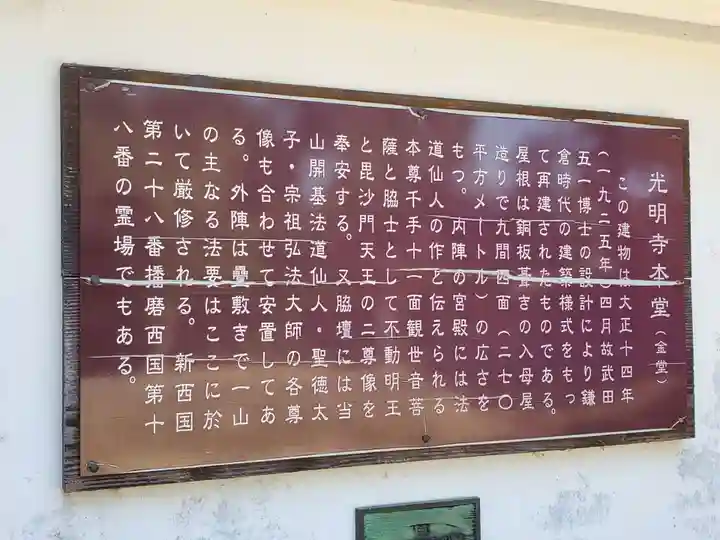 光明寺本堂（金堂）
この建物は大正十四年
（一九二五年）四月故武田
五一博士の設計により鎌
倉時代の建築様式をもっ
て再建されたものである。
屋根は銅板葺きの入母屋
造りで九間四面（二七〇
平方メートル）の広さを
もつ。内陣の宮殿には法
道仙人の作と伝えられる
本尊千手十一面観世音菩
薩と脇士として不動明王
と毘沙門天王の二尊像を
奉安する。又脇壇には当
山開基法道仙人・聖徳太
子・宗祖弘法大師の各尊
像も合わせて安置してあ
る。外陣は疊敷きで一山
の主なる法要はここに於
いて厳修される。新西国
第二十八番播磨西国第十
八番の霊場でもある。